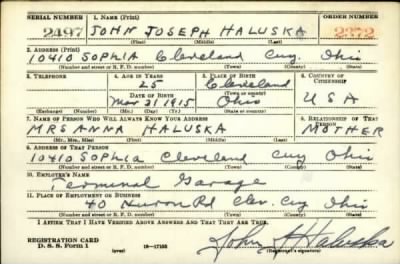 SERIAL NUMBER 1. NAME (Print) ORDER NUMBER
2497 JOHN JOSEPH HALUSKA 2372
(First) (Middle) (Last)
2. ADDRESS (Print)
10410 SOPHIA Cleveland Cuy. Ohio
(Number and street or R. F. D. number) (Town) (County) (State)
3. TELEPHONE 4. AGE IN YEARS 5. PLACE OF BIRTH 6. COUNTRY OF CITIZENSHIP
25 Cleveland
DATE OF BIRTH (Town or county)
Mar 31 1915 Ohio USA
(Exchange) (Number) (Mo.) (Day) (Yr.) (State or country)
7. NAME OF PERSON WHO WILL ALWAYS KNOW YOUR ADDRESS 8. RELATIONSHIP OF THAT PERSON
MRS ANNA HALUSKA MOTHER
(Mr., Mrs., Miss) (First) (Middle) (Last)
9. ADDRESS OF THAT PERSON
10410 SOPHIA Cleveland Cuy Ohio
(Number and street or R. F. D. number) (Town) (County) (State)
10. EMPLOYER'S NAME
Terminal Garage
11. PLACE OF EMPLOYMENT OR BUSINESS
40 Huron Rd Clev. Cuy Ohio
(Number and street or R. F. D. number) (Town) (County) (State)
I AFFIRM THAT I HAVE VERIFIED ABOVE ANSWERS AND THAT THEY ARE TRUE.
REGISTRATION CARD
D. S. S. Form 1 (over) 16—17105 John J Haluska
(Registrant's signature)